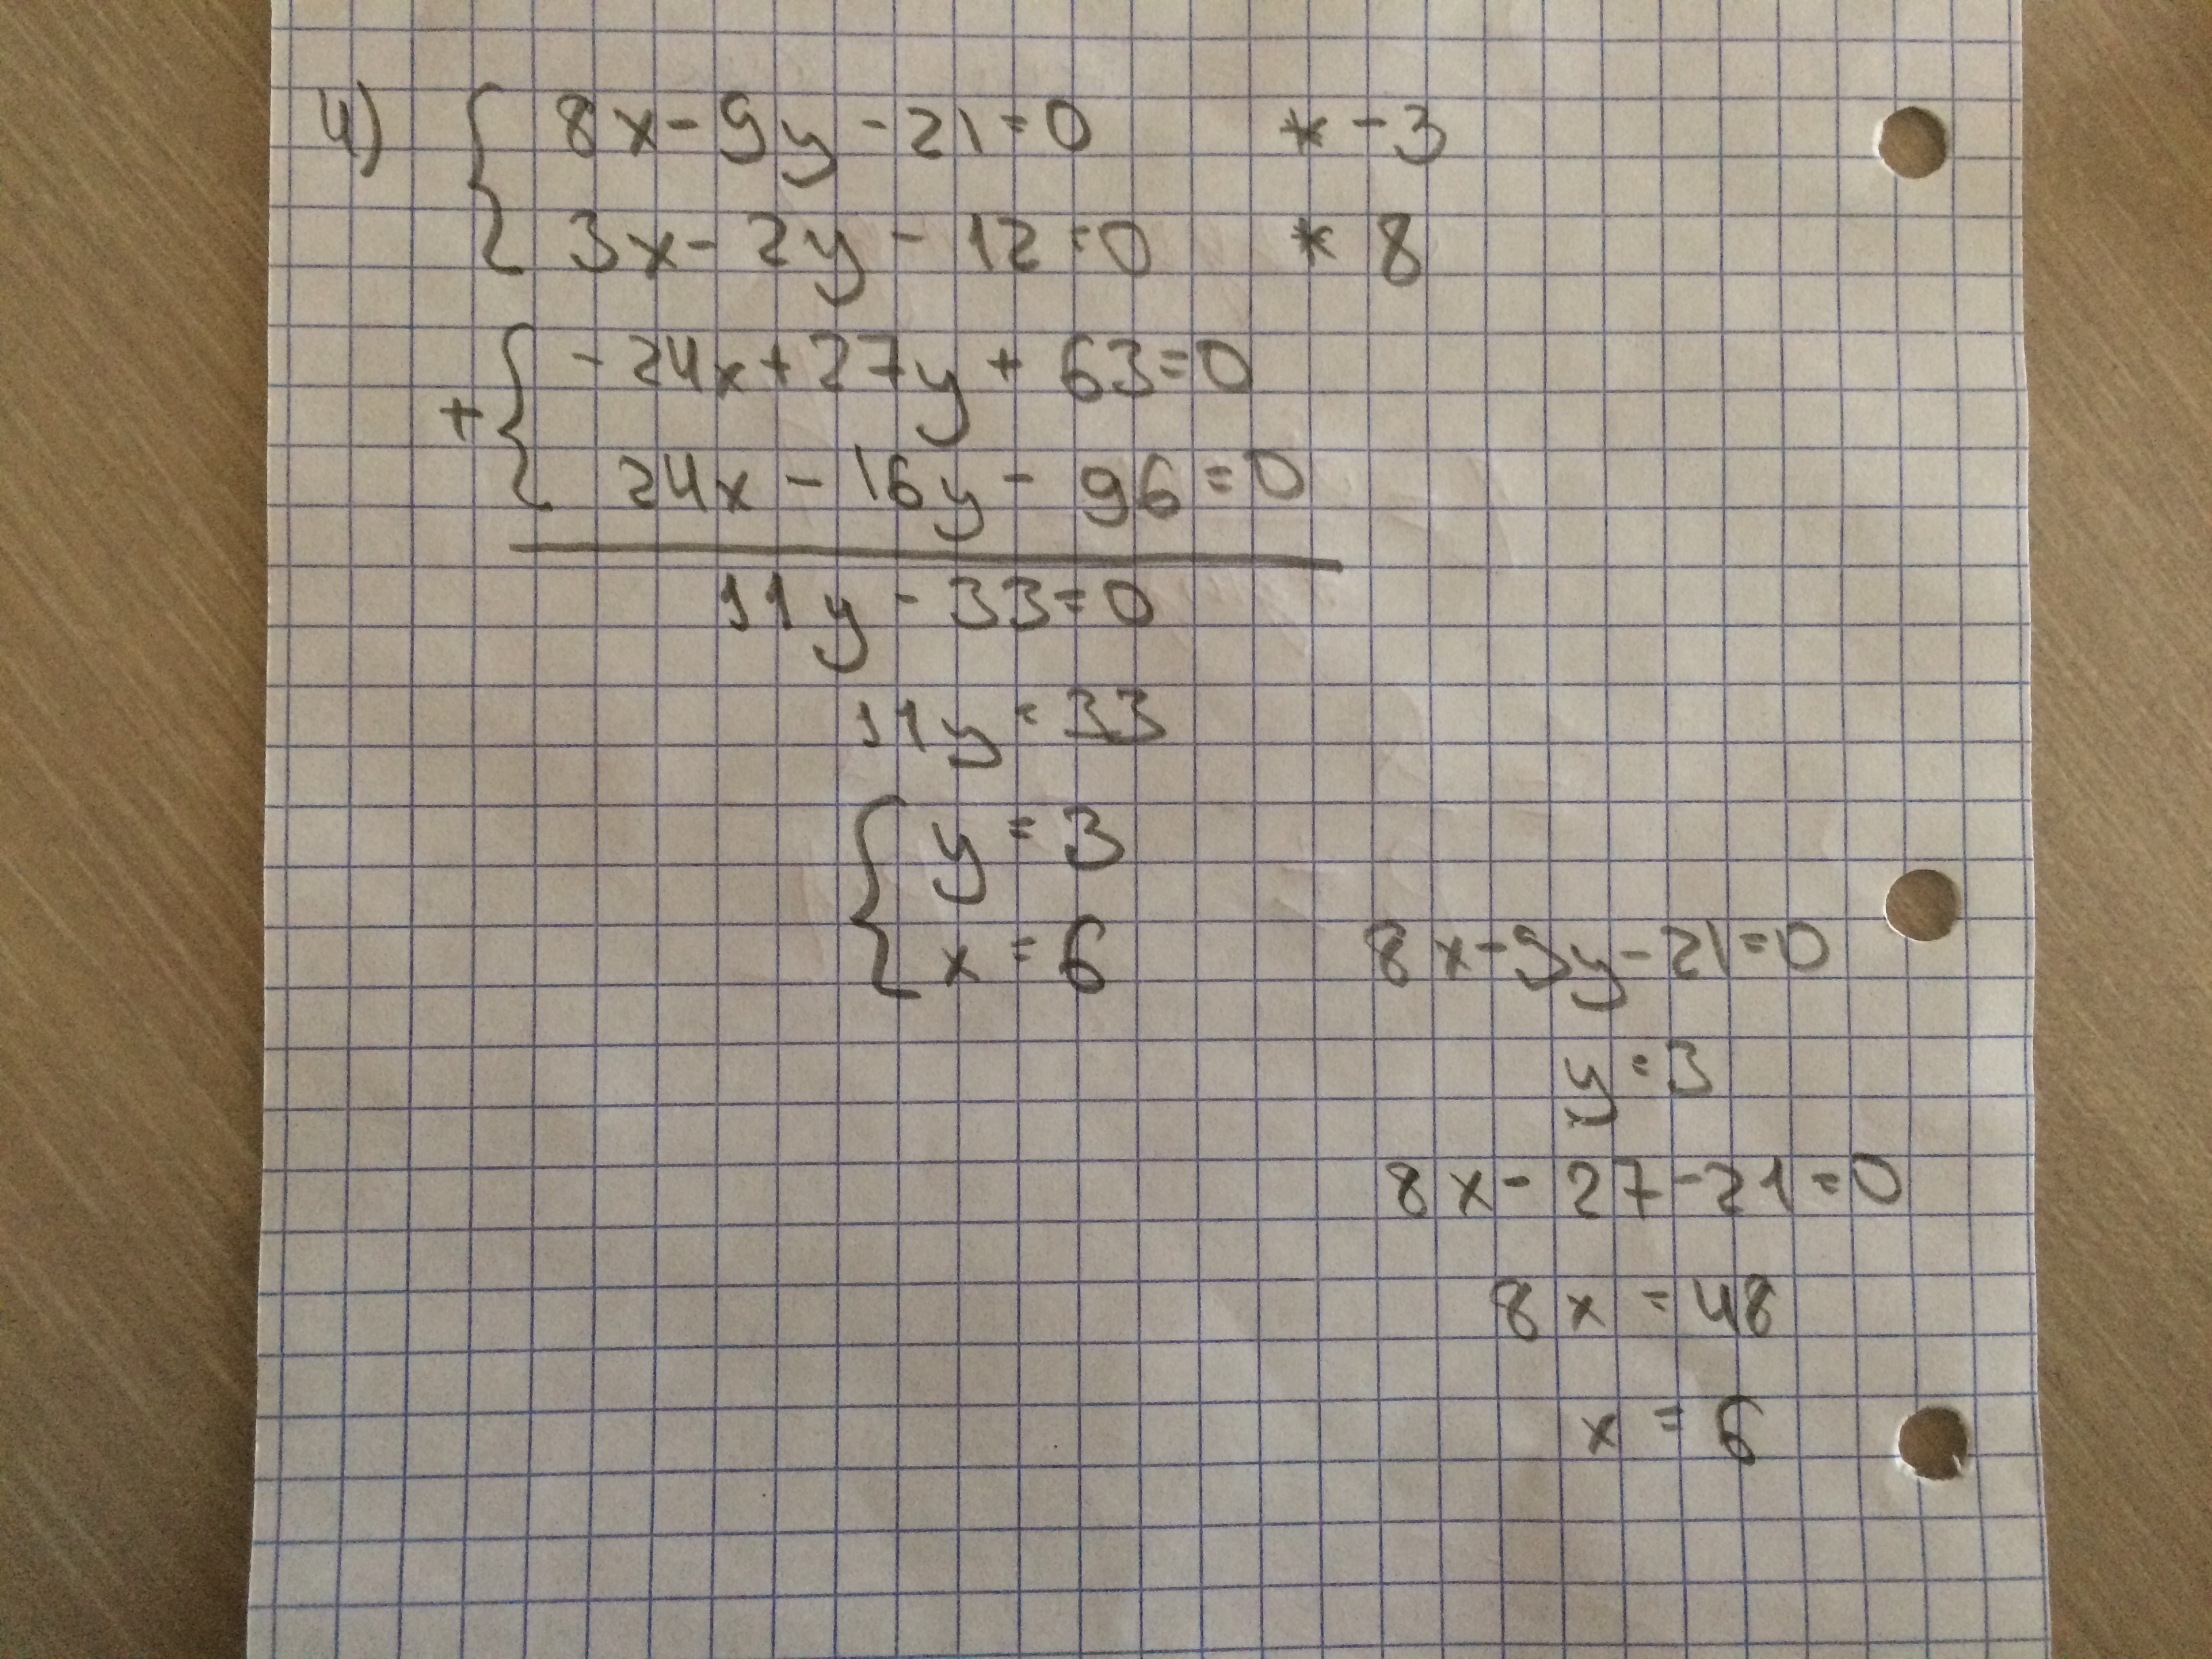 4) { 8x - 9y - 21 = 0 * -3
3x - 2y - 12 = 0 * 8
+ { -24x + 27y + 63 = 0
24x - 16y - 96 = 0
11y - 33 = 0
11y = 33
{ y = 3
x = 6
8x - 9y - 21 = 0
y = 3
8x - 27 - 21 = 0
8x = 48
x = 6